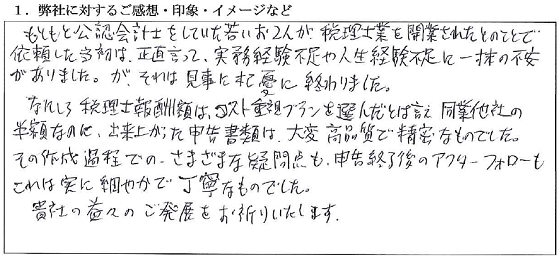 1．弊社に対するご感想・印象・イメージなど
もともと公認会計士をしていた若いお2人が税理士業を開業されたとのことで
依頼した当初は、正直言って、実務経験不足や人生経験不足に一抹の不安
がありました。が、それは見事に杞憂に終わりました。
なにしろ税理士報酬額は、コスト重視プランを選んだとは言え同業他社の
半額なのに、出来上がった申告書類は、大変高品質で精密なものでした。
その作成過程での、さまざまな疑問点も、申告終了後のアフターフォローも
これは実に細やかで丁寧なものでした。
貴社の益々のご発展をお祈りいたします.